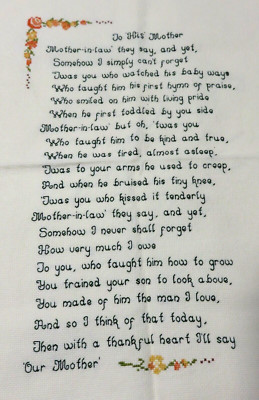 To 'His' Mother
'Mother-in-law' they say, and yet,
Somehow I simply can't forget
'Twas you who watched his baby ways
Who taught him his first hymn of praise,
Who smiled on him with living pride
When he first toddled by you side
'Mother-in-law' but oh, 'twas you
Who taught him to be kind and true,
When he was tired, almost asleep,
'Twas to your arms he used to creep,
And when he bruised his tiny knee,
'Twas you who kissed it tenderly
'Mother-in-law' they say, and yet,
Somehow I never shall forget
How very much I owe
To you, who taught him how to grow
You trained your son to look above,
You made of him the man I love,
And so I think of that today,
Then with a thankful heart I'll say
'Our Mother'